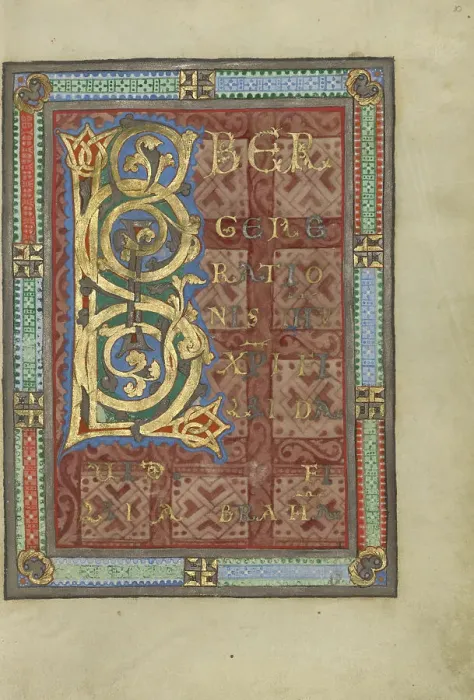 LIBER
GENE
RATIO
NIS IHV
XPI FI
LII DA
VID. FI
LII ABRAHA